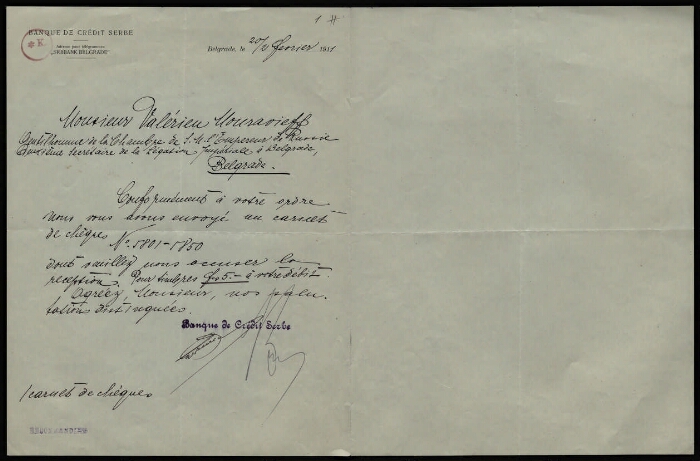 1 #
BANQUE DE CRÉDIT SERBE
Adresse pour télégrammes:
"SRBBANK BELGRADE"
K
Belgrade, le 20/2 février 1911
Monsieur Valérien Mouravieff
Gentilhomme de la Chambre de S. M. l'Empereur d. Russie
Deuxième Secrétaire de la Légation Impériale à Belgrade,
Belgrade.
Conformément à votre ordre
nous vous avons envoyé un carnet
de chèques
No. 5801-5850
dont veuillez nous accuser la
réception. Pour timbres frs 5.- à votre débit.
Agréez, Monsieur, nos salu-
tations distinguées.
Banque de Crédit Serbe
1 carnet de chèques